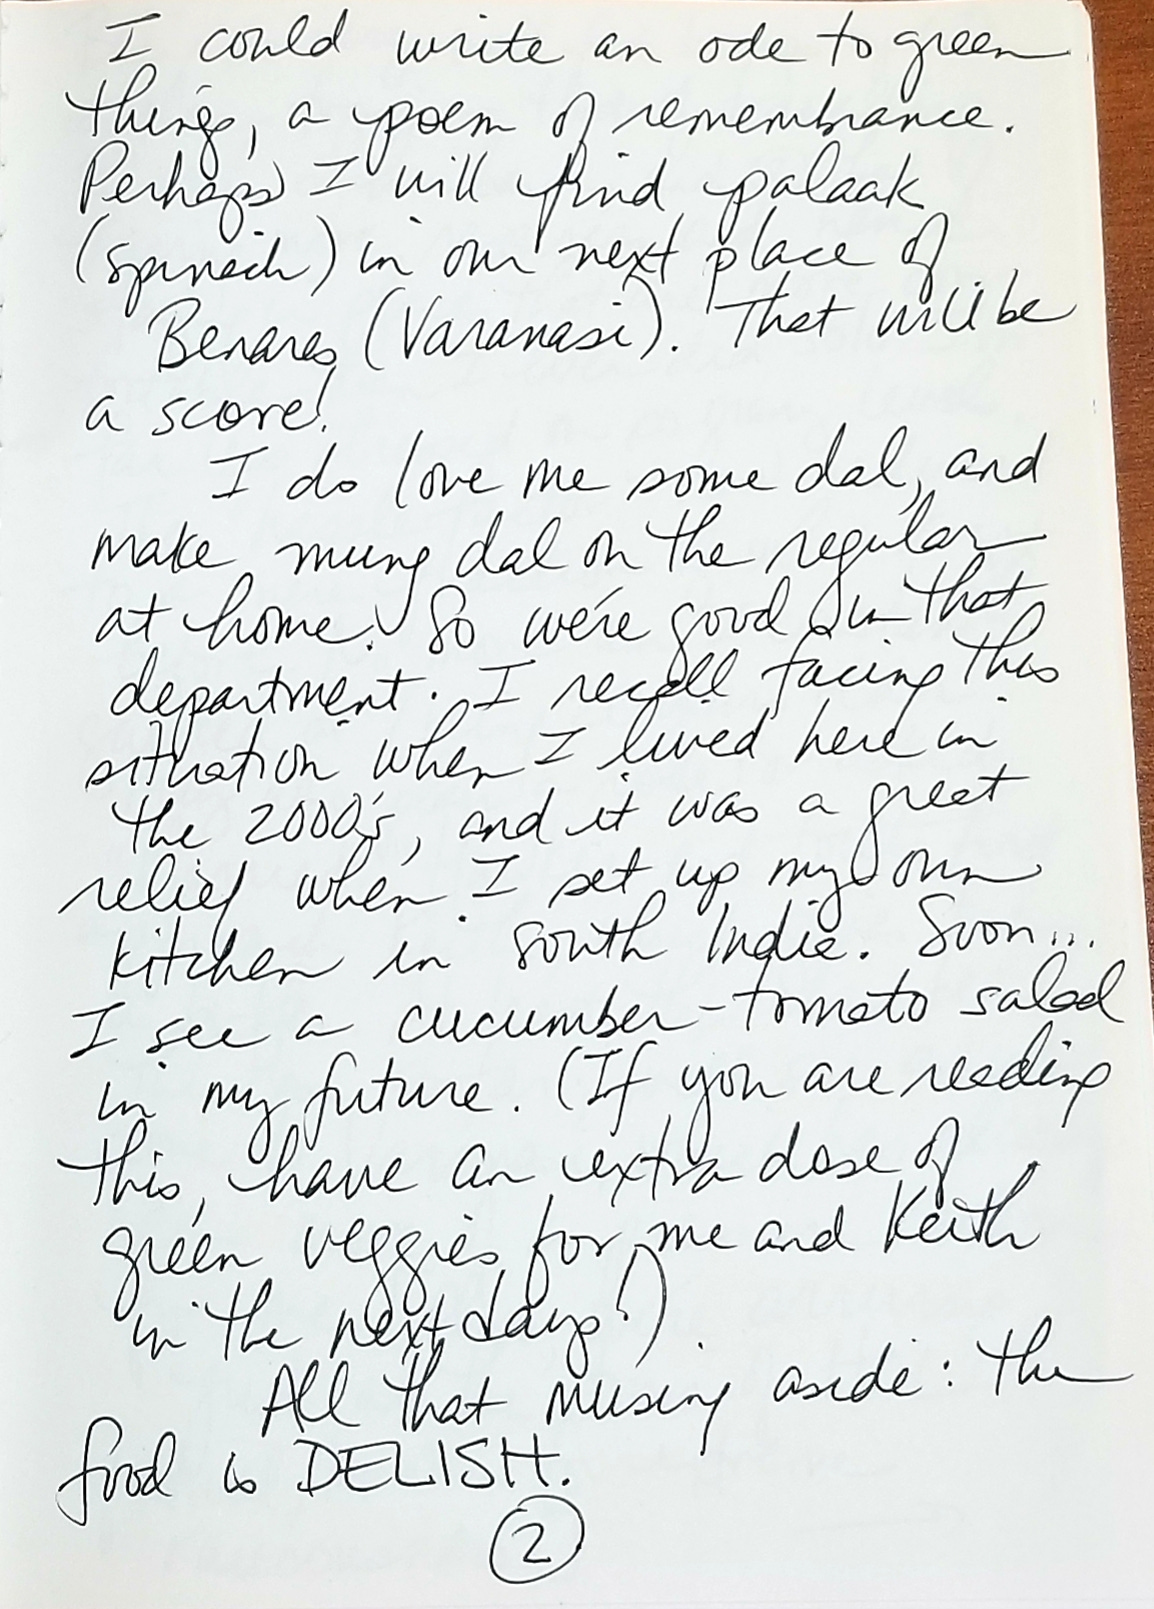 I could write an ode to green
things, a poem of remembrance.
Perhaps I will find palaak
(spinach) in our next place of
Benares (Varanasi). That will be
a score!
I do love me some dal, and
make mung dal on the regular
at home. So we're good in that
department. I recall facing this
situation when I lived here in
the 2000's, and it was a great
relief when I set up my own
kitchen in South India. Soon...
I see a cucumber-tomato salad
in my future. (If you are reading
this, have an extra dose of
green veggies for me and Keith
in the next days!)
All that musing aside: the
food is DELISH.
2